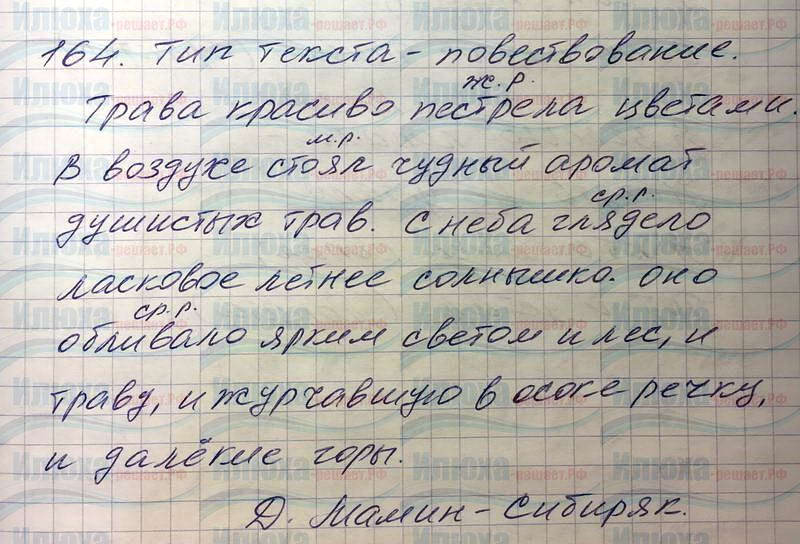 164. Тип текста - повествование.
ж.р.
Трава красиво пестрела цветами.
м.р.
В воздухе стоял чудный аромат
ср.р.
душистых трав. С неба глядело
ласковое летнее солнышко. Оно
ср.р.
обливало ярким светом и лес, и
траву, и журчавшую в осоке речку,
и далёкие горы.
Д. Мамин-Сибиряк.
Илюха-решает.РФ